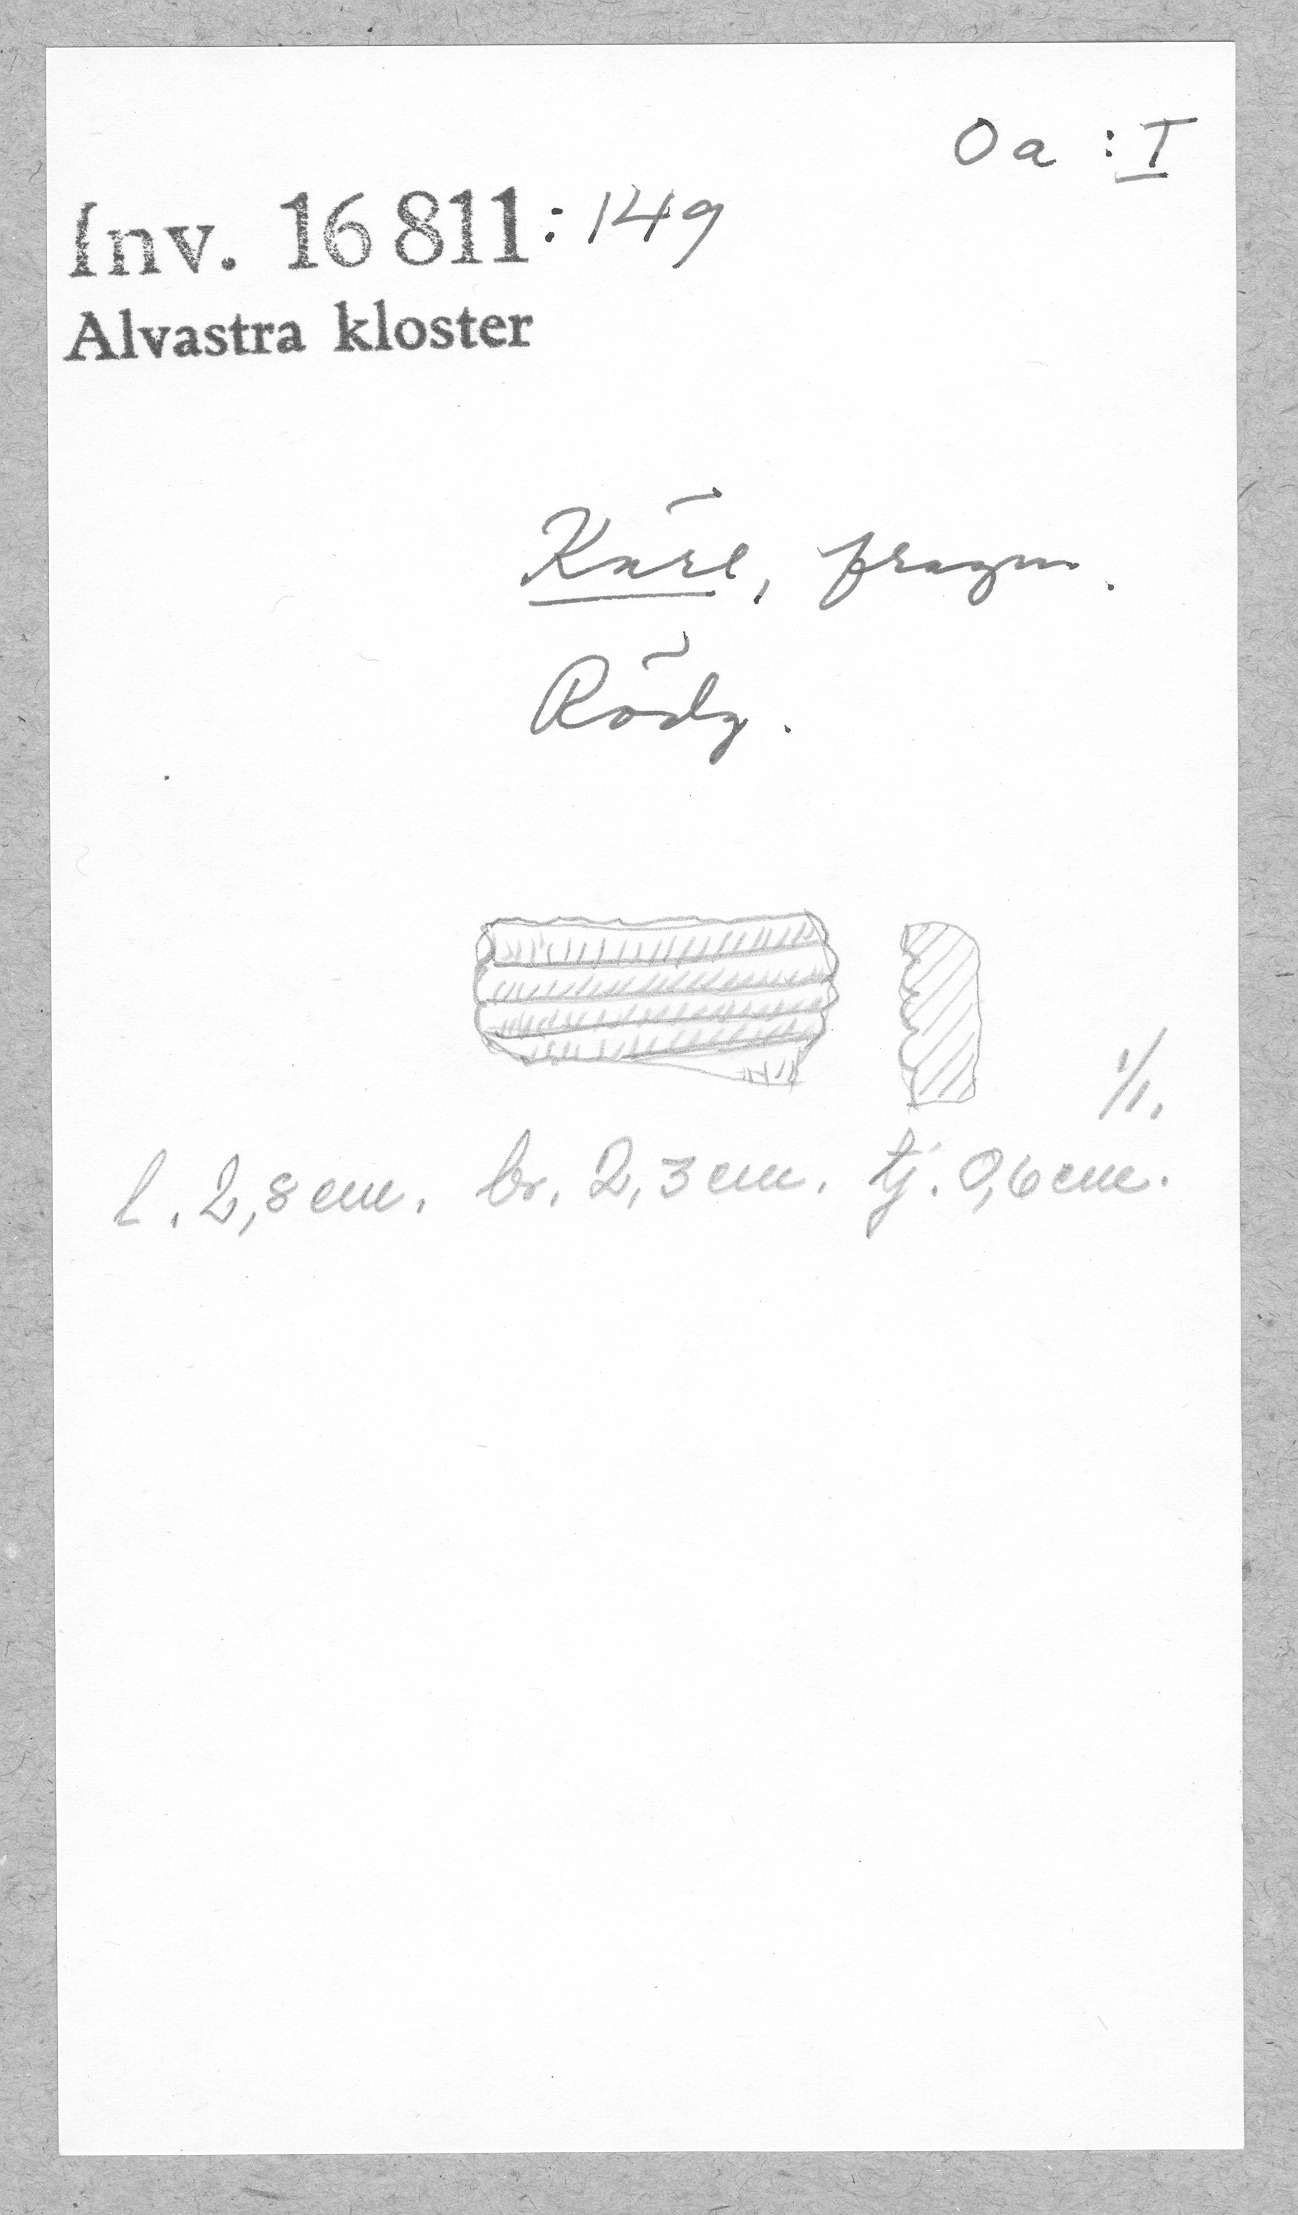 Oa : I
Inv. 16 811 : 149
Alvastra kloster
Kärl, fragm.
Rödg.
1/1.
l. 2,8 cm. br. 2,3 cm. tj. 0,6 cm.